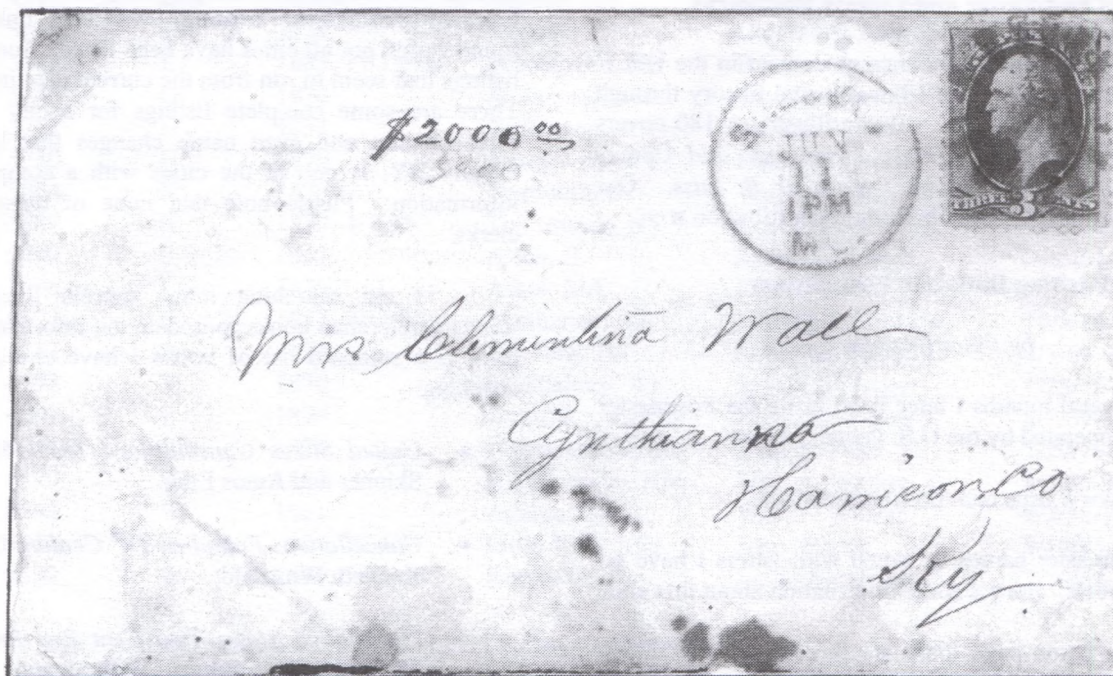 $2000 00
JUN
11
1PM
MO.
THREE 3 CENTS
Mrs Clementina Wall
Cynthianna
Harrison Co
Ky